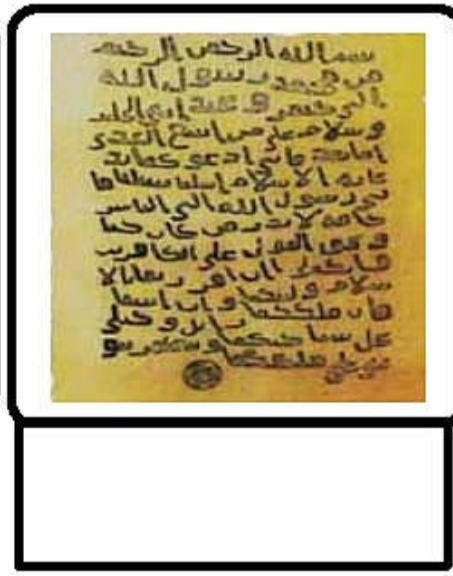 بسم الله الرحمن الرحيم
من محمد رسول الله
الى جيفر و عبد ابني الجلند
وسلام على من اتبع الهدى
اما بعد فاني ادعوكما بد
عاية الاسلام اسلما تسلما فا
ني رسول الله الى الناس
كافة لانذر من كان حيا
و يحق القول على الكافرين
فانكما ان اقررتما بالا
سلام وليتكما وان ابيتما
فان ملككما
بساحتكما وتظهر نبو
تي على ملككما